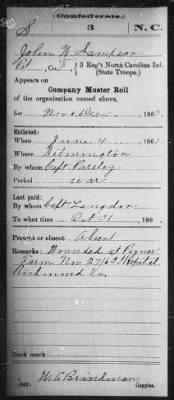 (Confederate.)
S 3 N.C.
John W. Sampson
Pvt, Co. F, 3 Reg't North Carolina Inf.
(State Troops.)
Appears on
Company Muster Roll
of the organization named above,
for Nov & Dec 1863.
Enlisted:
When June 4, 1861
Where Wilmington
By whom Capt. Parsley
Period war
Last paid:
By whom Capt Langdon
To what time Oct 31, 186
Present or absent Absent
Remarks: Wounded at Paynes
Farm Nov 27/63 Hospital
Richmond Va
W. A. Brinkman
Copyist.